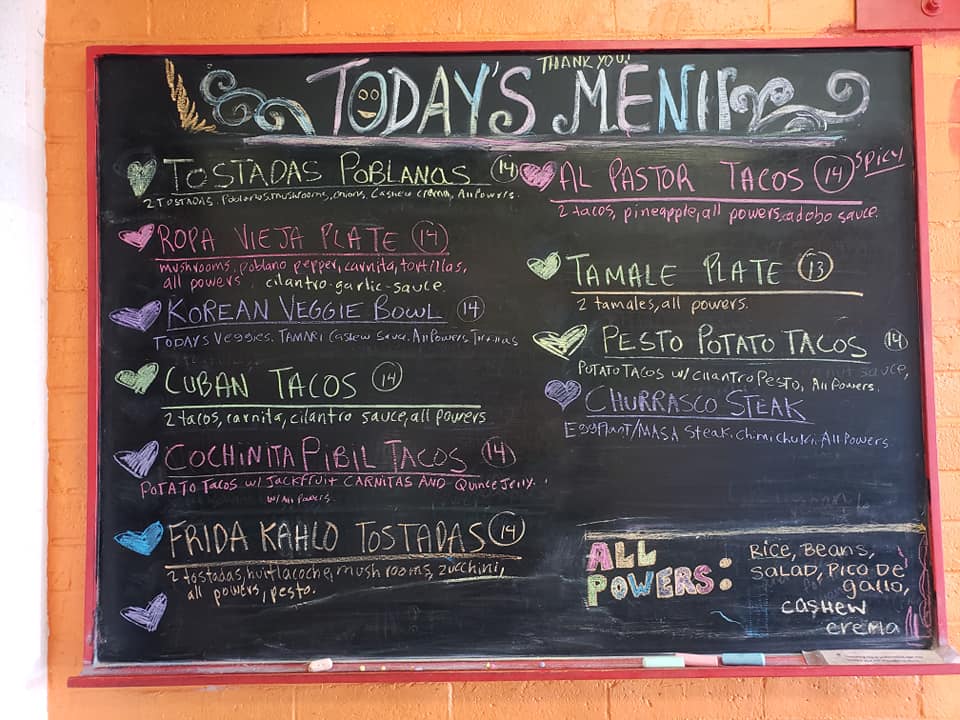 THANK YOU!
TODAY'S MENU
TOSTADAS POBLANAS 14
2 TOSTADAS. Poblanos, mushrooms, onions, Cashew crema, All Powers.
ROPA VIEJA PLATE 14
mushrooms, poblano pepper, carnita, tortillas,
all powers. cilantro-garlic-sauce.
KOREAN VEGGIE BOWL 14
TODAYS Veggies. TAMARI Cashew Sauce. All Powers,
CUBAN TACOS 14
2 tacos, carnita, cilantro sauce, all powers
COCHINITA PIBIL TACOS 14
POTATO TACOS w/ JACKfruit CARNITAS AND Quince Jelly.
w/ All Powers.
FRIDA KAHLO TOSTADAS 14
2 tostadas, huitlacoche, mushrooms, zucchini,
all powers, pesto.
AL PASTOR TACOS 14 SPICY
2 tacos, pineapple, all powers, adobo sauce.
TAMALE PLATE 13
2 tamales, all powers.
PESTO POTATO TACOS 14
POTATO TACOS w/ cilantro Pesto, All Powers.
CHURRASCO STEAK
EGGPlant/MASA Steak. Chimichulri. All Powers
ALL
POWERS:
Rice, Beans,
SALAD, PICO DE
gallo,
CASHEW
crema